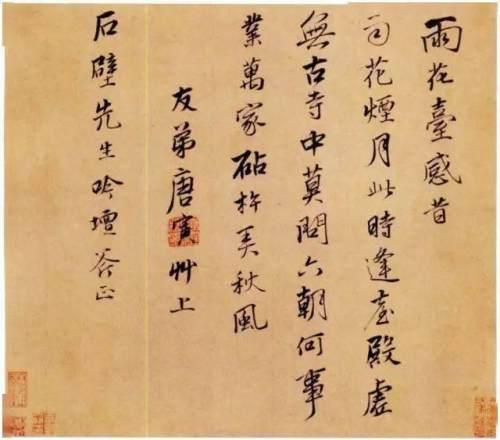 雨花臺感昔
花煙月此時逢臺殿虛
無古寺中莫問六朝何事
業萬家砧杵美秋風
友弟唐寅艸上
石壁先生吟壇正